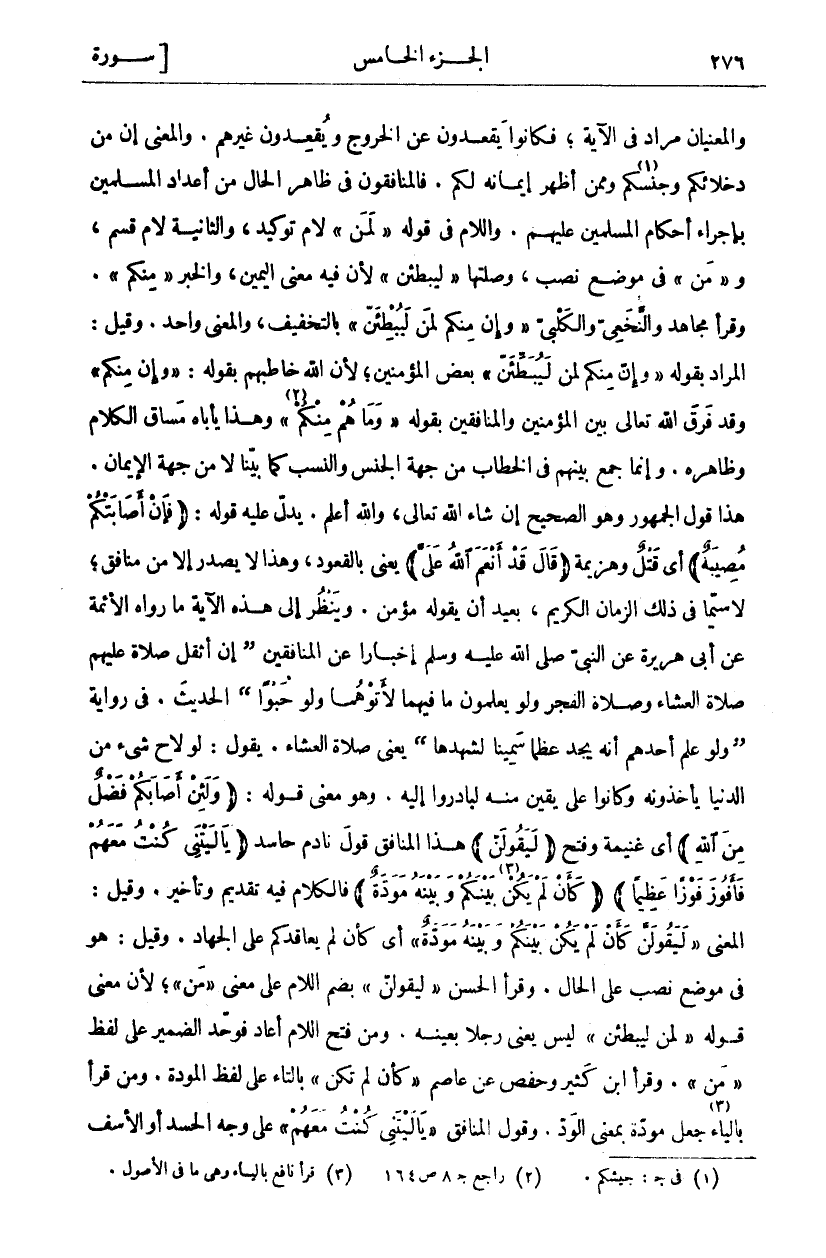 ٢٧٦ الجـزء الخـامس [ سـورة
والمعنيان مراد فى الآية ؛ فكانوا يَقعـدون عن الخروج ويُقعِـدون غيرهم . والمعنى إن من
دخلائكم وجنسكم (١) وممن أظهر إيمـانه لكم . فالمنافقون فى ظاهر الحال من أعداد المسـلمين
بإجراء أحكام المسلمين عليهـم . واللام فى قوله « لَمَن » لام توكيد ، والثانيـة لام قسم ،
و « مَن » فى موضـع نصب ، وصلتها « ليبطئن » لأن فيه معنى اليمين ، والخبر « مِنكم » .
وقرأ مجاهد والنَّخَعِىّ والكَلْبِىّ « وإن مِنكم لمَن لَيُبْطِئَنّ » بالتخفيف ، والمعنى واحد . وقيل :
المراد بقوله « وإنّ مِنكم لمن لَيُبَطِّئَنّ » بعض المؤمنين ؛ لأن الله خاطبهم بقوله : « وإن مِنكم »
وقد فَرَق الله تعالى بين المؤمنين والمنافقين بقوله « وَمَا هُمْ مِنْكُمْ (٢) » وهـذا يأباه مَساق الكلام
وظاهره . وإنما جمع بينهم فى الخطاب من جهة الجنس والنسب كما بيّنا لا من جهة الإيمان .
هذا قول الجمهور وهو الصحيح إن شاء الله تعالى ، والله أعلم . يدلّ عليه قوله : ﴿ فَإِنْ أَصَابَتْكُمْ
مُصِيبَةٌ ﴾ أى قَتْلٌ وهزيمة ﴿ قَالَ قَدْ أَنْعَمَ ٱللهُ عَلَىَّ ﴾ يعنى بالقعود ، وهذا لا يصدر إلا من منافق ؛
لاسيّما فى ذلك الزمان الكريم ، بعيد أن يقوله مؤمن . وينَظُر إلى هـذه الآية ما رواه الأئمة
عن أبى هريرة عن النبىّ صلى الله عليـه وسلم إخبـارا عن المنافقين ” إن أثقل صلاة عليهم
صلاة العشاء وصـلاة الفجر ولو يعلمون ما فيهما لأتَوْهُمـا ولو حَبْوًا “ الحديثَ . فى رواية
” ولو علم أحدهم أنه يجد عظما سَمِينا لشهدها “ يعنى صلاة العشاء . يقول : لو لاح شىء من
الدنيا يأخذونه وكانوا على يقين منـه لبادروا إليه . وهو معنى قـوله : ﴿ وَلَئِنْ أَصَابَكُمْ فَضْلٌ
مِنَ ٱللهِ ﴾ أى غنيمة وفتح ﴿ لَيَقُولَنّ ﴾ هـذا المنافق قولَ نادم حاسد ﴿ يَالَيْتَنِى كُنْتُ مَعَهُمْ
فَأَفُوزَ فَوْزًا عَظِيمًا ﴾ ﴿ كَأَنْ لَمْ يَكُنْ (٣) بَيْنَكُمْ وَبَيْنَهُ مَوَدَّةٌ ﴾ فالكلام فيه تقديم وتأخير . وقيل :
المعنى « لَيَقُولَنَّ كَأَنْ لَمْ يَكُنْ بَيْنَكُمْ وَبَيْنَهُ مَوَدَّةٌ » أى كأن لم يعاقدكم على الجهاد . وقيل : هو
فى موضع نصب على الحال . وقرأ الحسن « ليقولنّ » بضم اللام على معنى « مَن » ؛ لأن معنى
قـوله « لمن ليبطئن » ليس يعنى رجلا بعينـه . ومن فتح اللام أعاد فوحّد الضمير على لفظ
« مَن » . وقرأ ابن كَثير وحفص عن عاصم « كأن لم تكن » بالتاء على لفظ المودة . ومن قرأ
بالياء (٣) جعل مودّة بمعنى الوَدّ . وقول المنافق « يَالَيْتَنِى كُنْتُ مَعَهُمْ » على وجه الحسد أو الأسف
(١) فى جـ : جيشكم . (٢) راجع جـ ٨ ص ١٦٤ (٣) قرأ نافع باليـاء وهى ما فى الأصول .